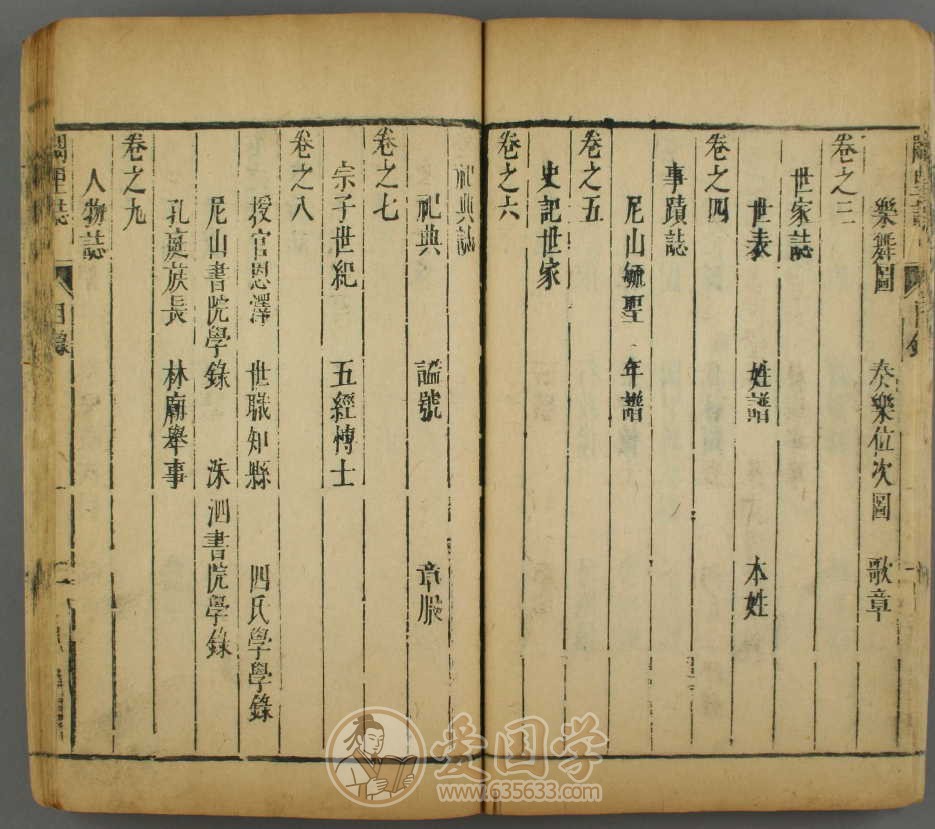 樂舞圖 奏樂位次圖 歌章
卷之三
世家誌
世表 姓譜 本姓
卷之四
事蹟誌
尼山毓聖 年譜
卷之五
史記世家
卷之六
祀典誌
祀典 謚號 章服
卷之七
宗子世紀 五經博士
卷之八
授官恩澤 世職知縣 四氏學學錄
尼山書院學錄 洙泗書院學錄
孔庭族長 林廟舉事
卷之九
人物誌
闕里誌 目錄 二
爱国学
www.635633.com